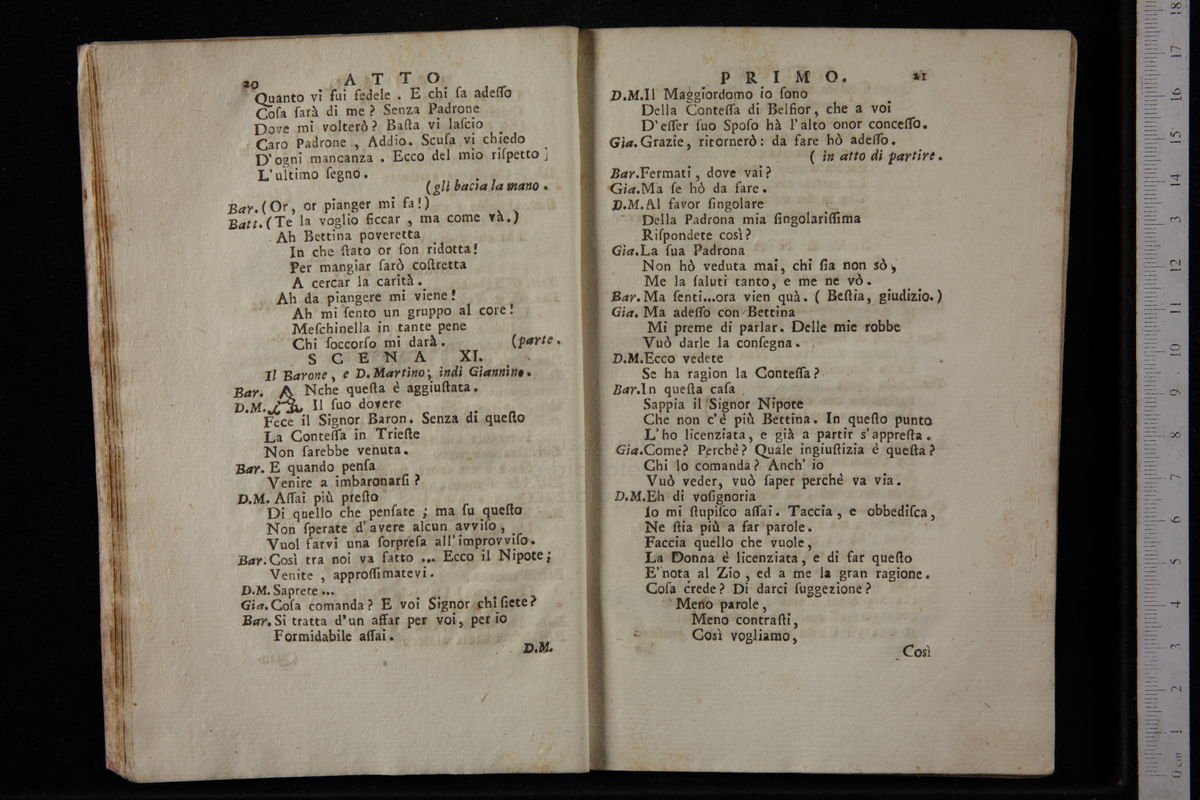 20 ATTO
Quanto vi fui fedele . E chi ſa adeſſo
Coſa ſarà di me? Senza Padrone
Dove mi volterò? Baſta vi laſcio
Caro Padrone , Addio. Scuſa vi chiedo
D'ogni mancanza . Ecco del mio riſpetto
L'ultimo ſegno.
(gli bacia la mano .
Bar. (Or, or pianger mi fa!)
Batt. (Te la voglio ficcar , ma come và.)
Ah Bettina poveretta
In che ſtato or ſon ridotta!
Per mangiar ſarò coſtretta
A cercar la carità .
Ah da piangere mi viene!
Ah mi ſento un gruppo al core!
Meſchinella in tante pene
Chi ſoccorſo mi darà . (parte .
SCENA XI.
Il Barone, e D. Martino; indi Giannino.
Bar. ANche queſta è aggiuſtata.
D.M. Il ſuo dovere
Fece il Signor Baron. Senza di queſto
La Conteſſa in Trieſte
Non ſarebbe venuta.
Bar. E quando penſa
Venire a imbaronarſi?
D.M. Aſſai più preſto
Di quello che penſate ; ma ſu queſto
Non ſperate d'avere alcun avviſo,
Vuol farvi una ſorpreſa all'improvviſo.
Bar. Così tra noi va fatto ... Ecco il Nipote;
Venite , approſſimatevi.
D.M. Saprete ...
Gia. Coſa comanda? E voi Signor chi ſiete?
Bar. Si tratta d'un affar per voi, per io
Formidabile aſſai.
D.M.
PRIMO. 21
D.M. Il Maggiordomo io ſono
Della Conteſſa di Belfior, che a voi
D'eſſer ſuo Spoſo hà l'alto onor conceſſo.
Gia. Grazie, ritornerò: da fare hò adeſſo.
( in atto di partire.
Bar. Fermati, dove vai?
Gia. Ma ſe hò da fare.
D.M. Al favor ſingolare
Della Padrona mia ſingolariſſima
Riſpondete così?
Gia. La ſua Padrona
Non hò veduta mai, chi ſia non sò,
Me la ſaluti tanto, e me ne vò.
Bar. Ma ſenti...ora vien quà. ( Beſtia, giudizio.)
Gia. Ma adeſſo con Bettina
Mi preme di parlar. Delle mie robbe
Vuò darle la conſegna.
D.M. Ecco vedete
Se ha ragion la Conteſſa?
Bar. In queſta caſa
Sappia il Signor Nipote
Che non c'è più Bettina. In queſto punto
L'ho licenziata, e già a partir s'appreſta.
Gia. Come? Perchè? Quale ingiuſtizia è queſta?
Chi lo comanda? Anch' io
Vuò veder, vuò ſaper perchè va via.
D.M. Eh di voſignoria
Io mi ſtupiſco aſſai. Taccia, e obbediſca,
Ne ſtia più a far parole.
Faccia quello che vuole,
La Donna è licenziata, e di far queſto
E' nota al Zio, ed a me la gran ragione.
Coſa crede? Di darci ſuggezione?
Meno parole,
Meno contraſti,
Così vogliamo,
Così